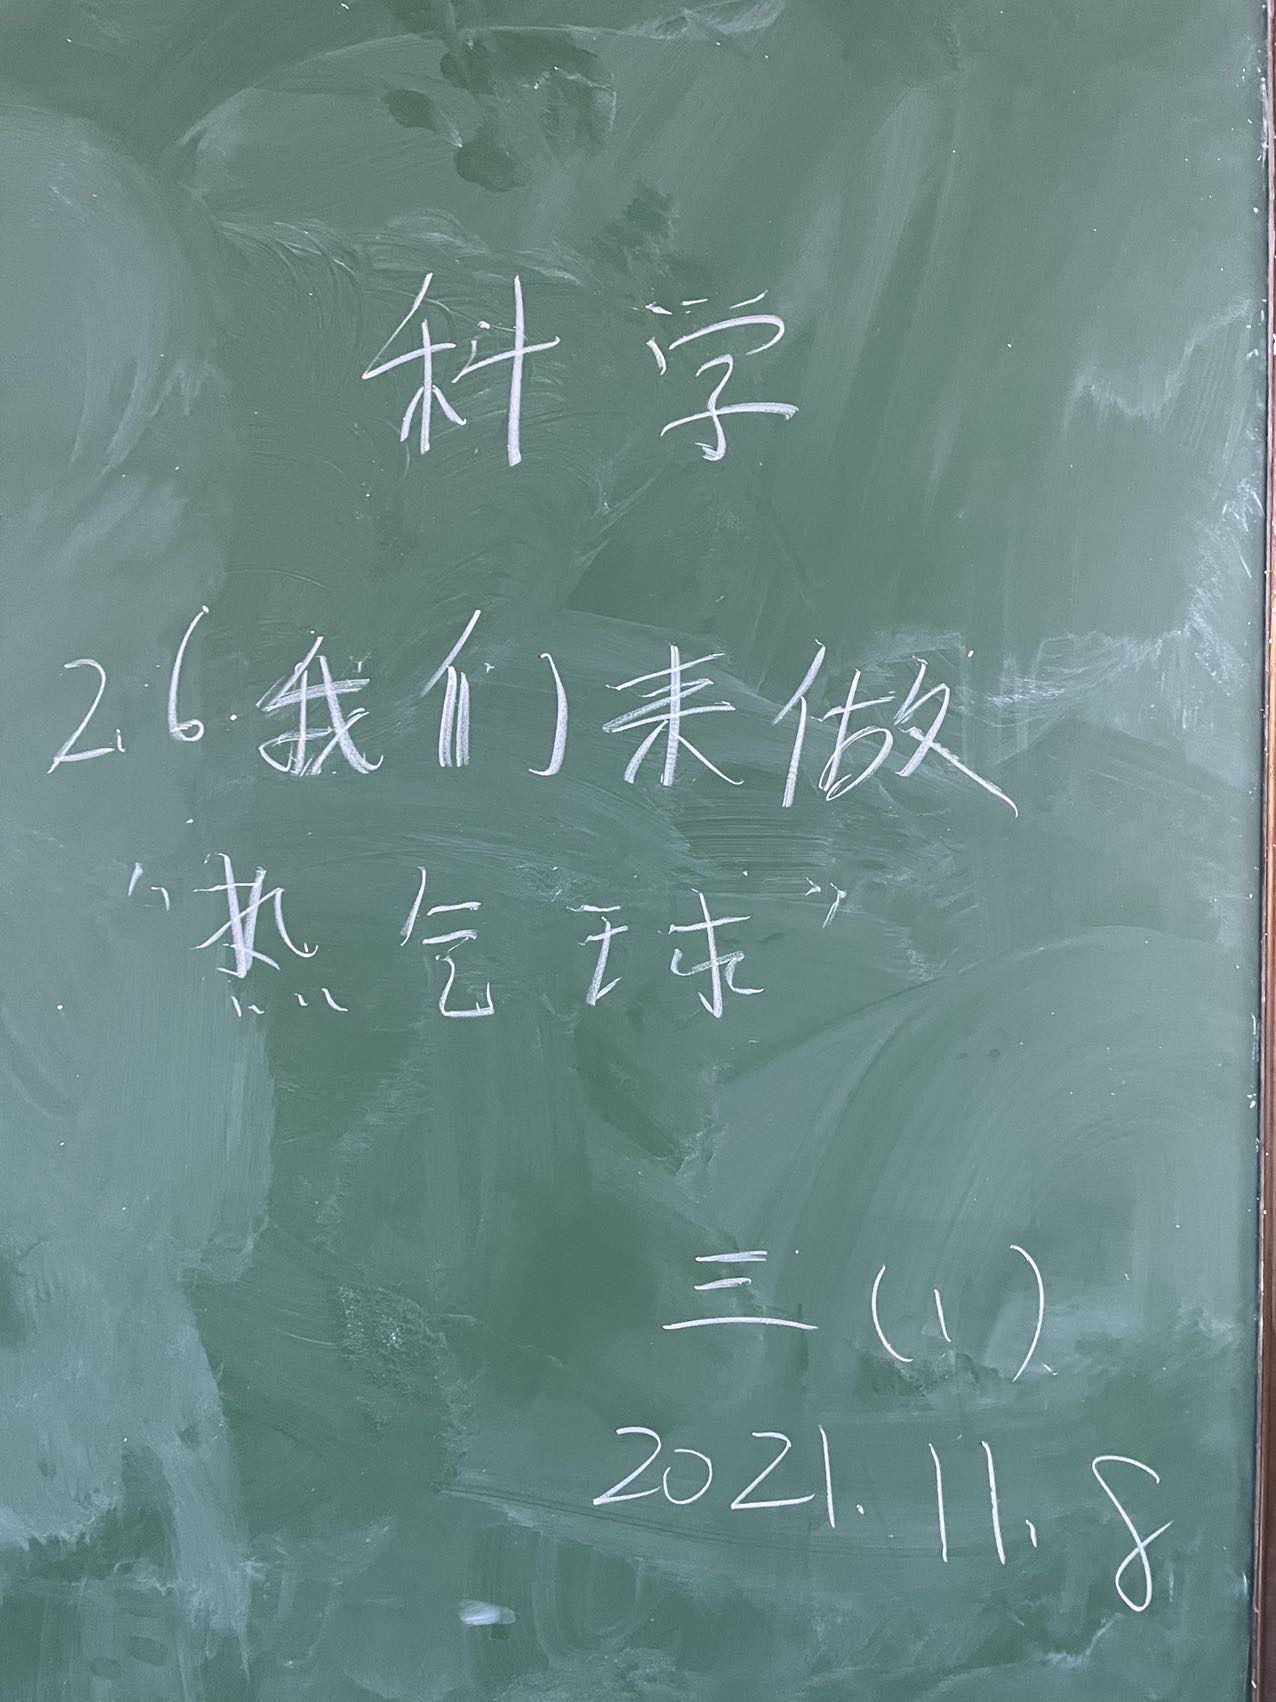 科学
2.6.我们来做
“热气球”
三（1）
2021.11.8